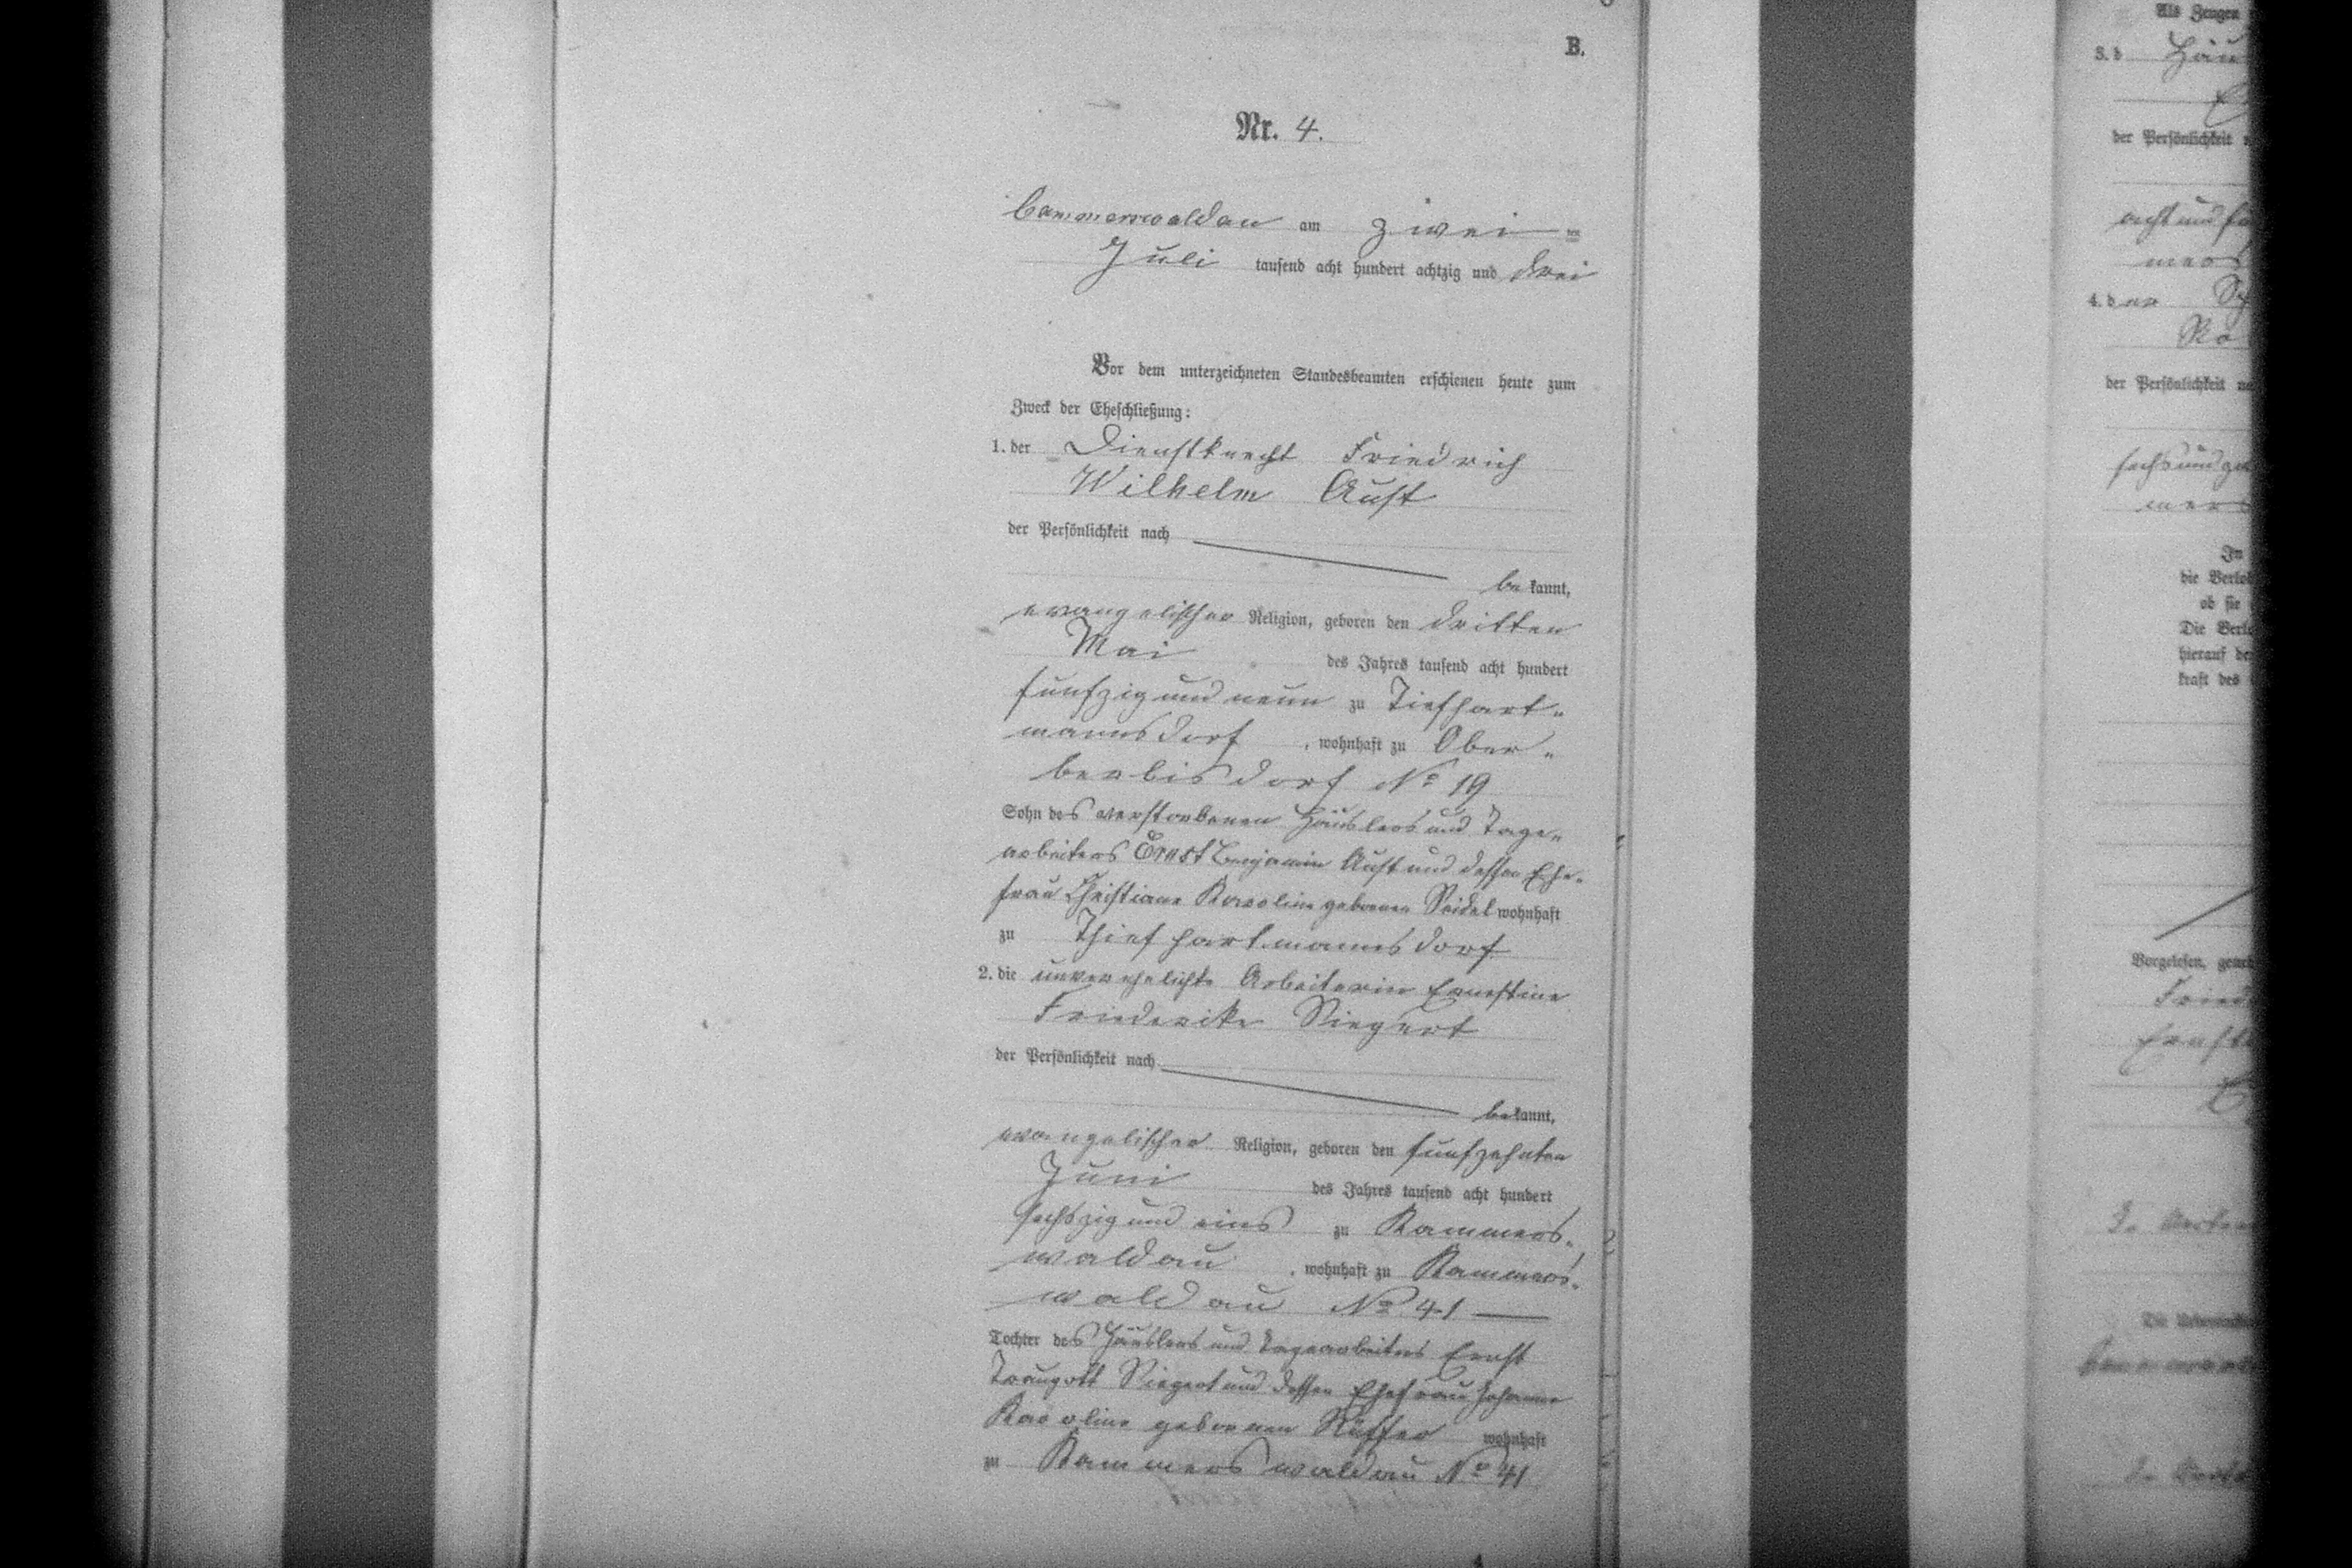 B.
Nr. 4.
Cammerswaldau am zwei-
ten
Juli tausend acht hundert achtzig und drei
Vor dem unterzeichneten Standesbeamten erschienen heute zum
Zweck der Eheschließung:
1. der Dienstknecht Friedrich
Wilhelm Aust
der Persönlichkeit nach
bekannt,
evangelischer Religion, geboren den dritten
Mai des Jahres tausend acht hundert
fünfzig und neun zu Tiefhart-
mannsdorf, wohnhaft zu Ober-
berbisdorf No 19
Sohn des verstorbenen Häuslers und Tage-
arbeiters Ernst Benjamin Aust und dessen Ehe-
frau Christiane Karoline geborenen Seidel wohnhaft
zu Thiefhartmannsdorf
2. die unverehelichte Arbeiterin Ernestine
Friederike Siegert
der Persönlichkeit nach
bekannt,
evangelischer Religion, geboren den fünfzehnten
Juni des Jahres tausend acht hundert
sechszig und eins zu Kammers-
waldau, wohnhaft zu Kammers-
waldau No 41
Tochter des Häuslers und Tagearbeiters Ernst
Traugott Siegert und dessen Ehefrau Johanne
Karoline geborenen Rüffer wohnhaft
zu Kammerswaldau No 41
Als Zeugen
3. d Häu
der Persönlichkeit
acht und
mers
4. der
der Persönlichkeit na
sechs und
mers
In
die Verlo
ob sie
Die Verl
hierauf de
kraft des
Vorgelesen, geneh
Fried
Ernst